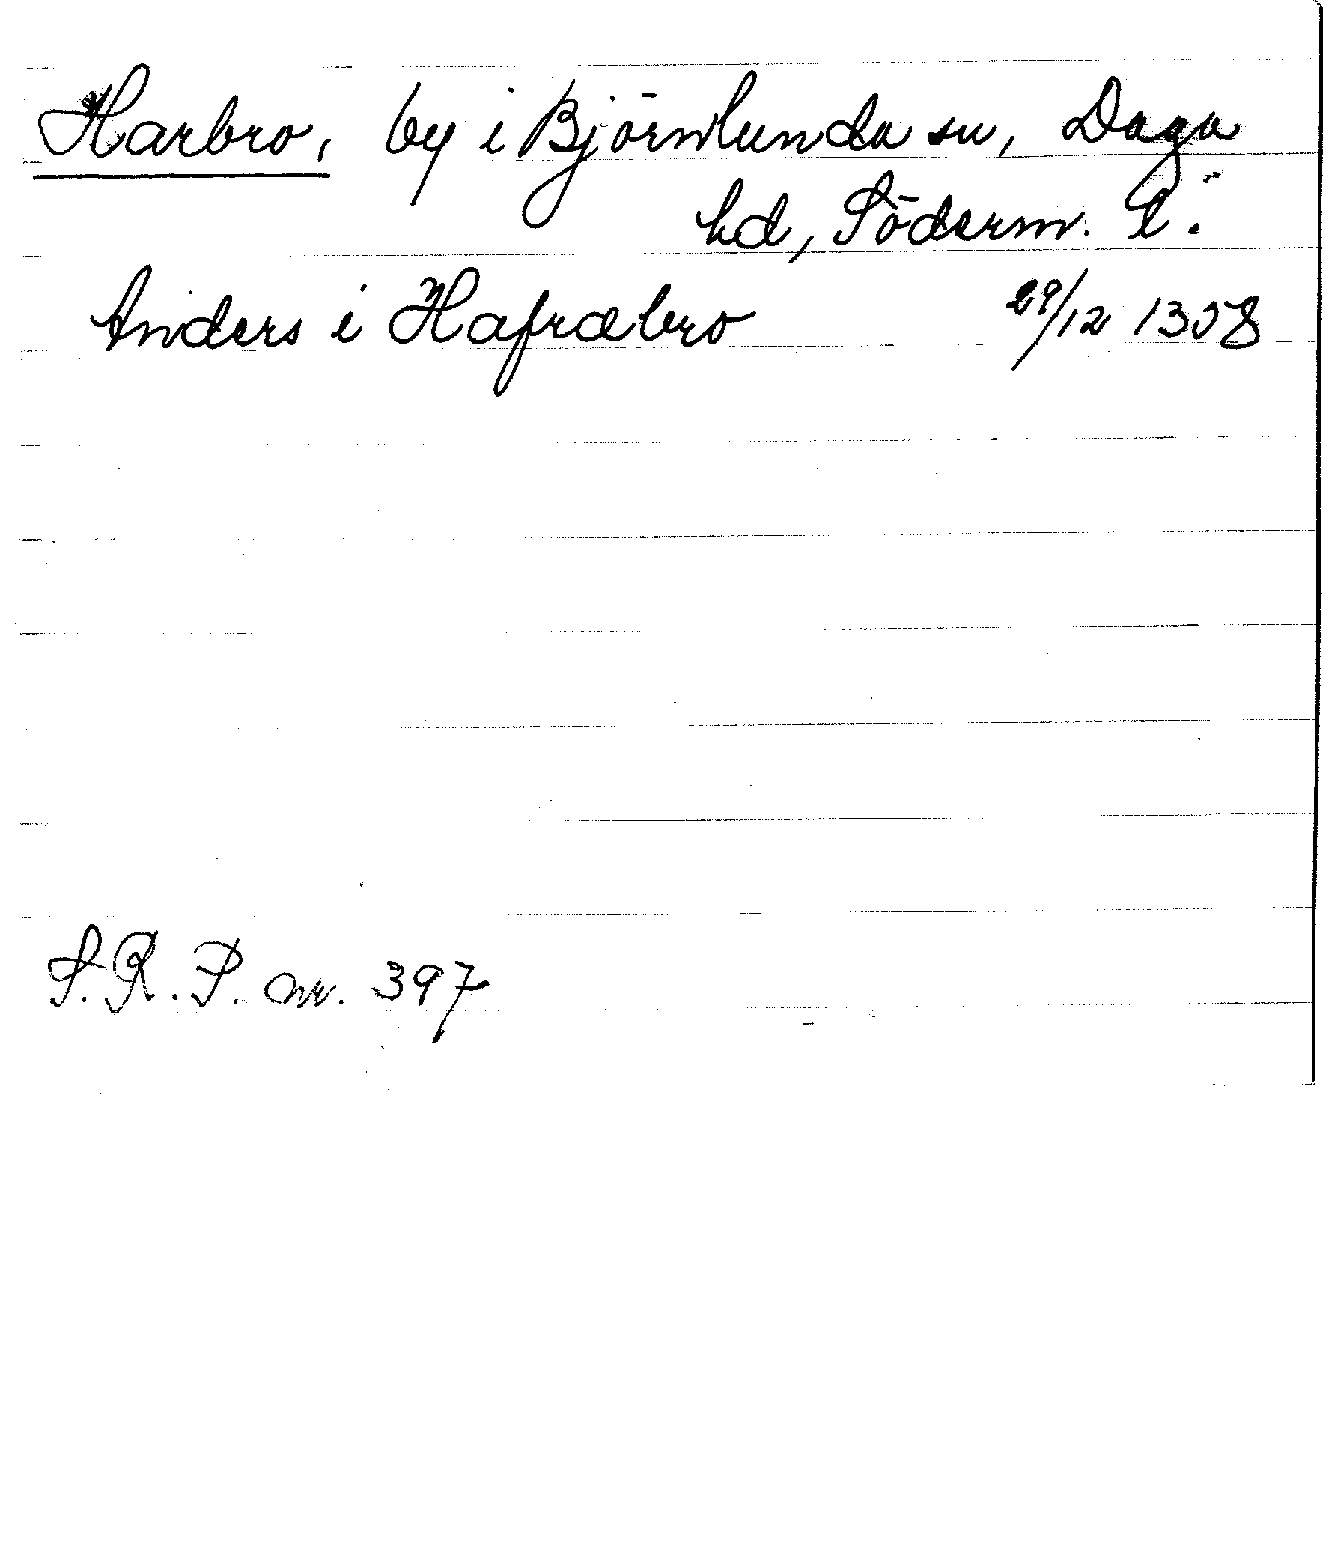 Harbro, by i Björnlunda sn, Daga
hd, Söderm. l.
Anders i Hafræbro 29/12 1358
S.R.P. nr. 397